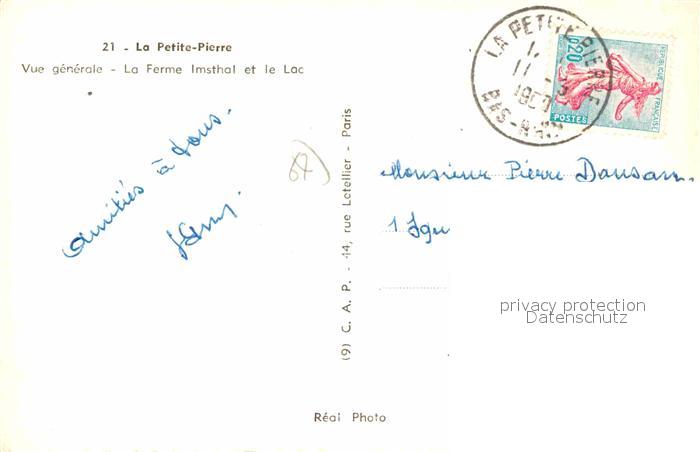 21 - La Petite-Pierre
Vue générale - La Ferme Imsthal et le Lac
amitiés à tous.
67
(9) C. A. P. - 44, rue Letellier - Paris
LA PETITE PIERRE
11
BAS-RHIN
0,20
REPUBLIQUE FRANÇAISE
POSTES
Monsieur Pierre
1
privacy protection
Datenschutz
Réal Photo